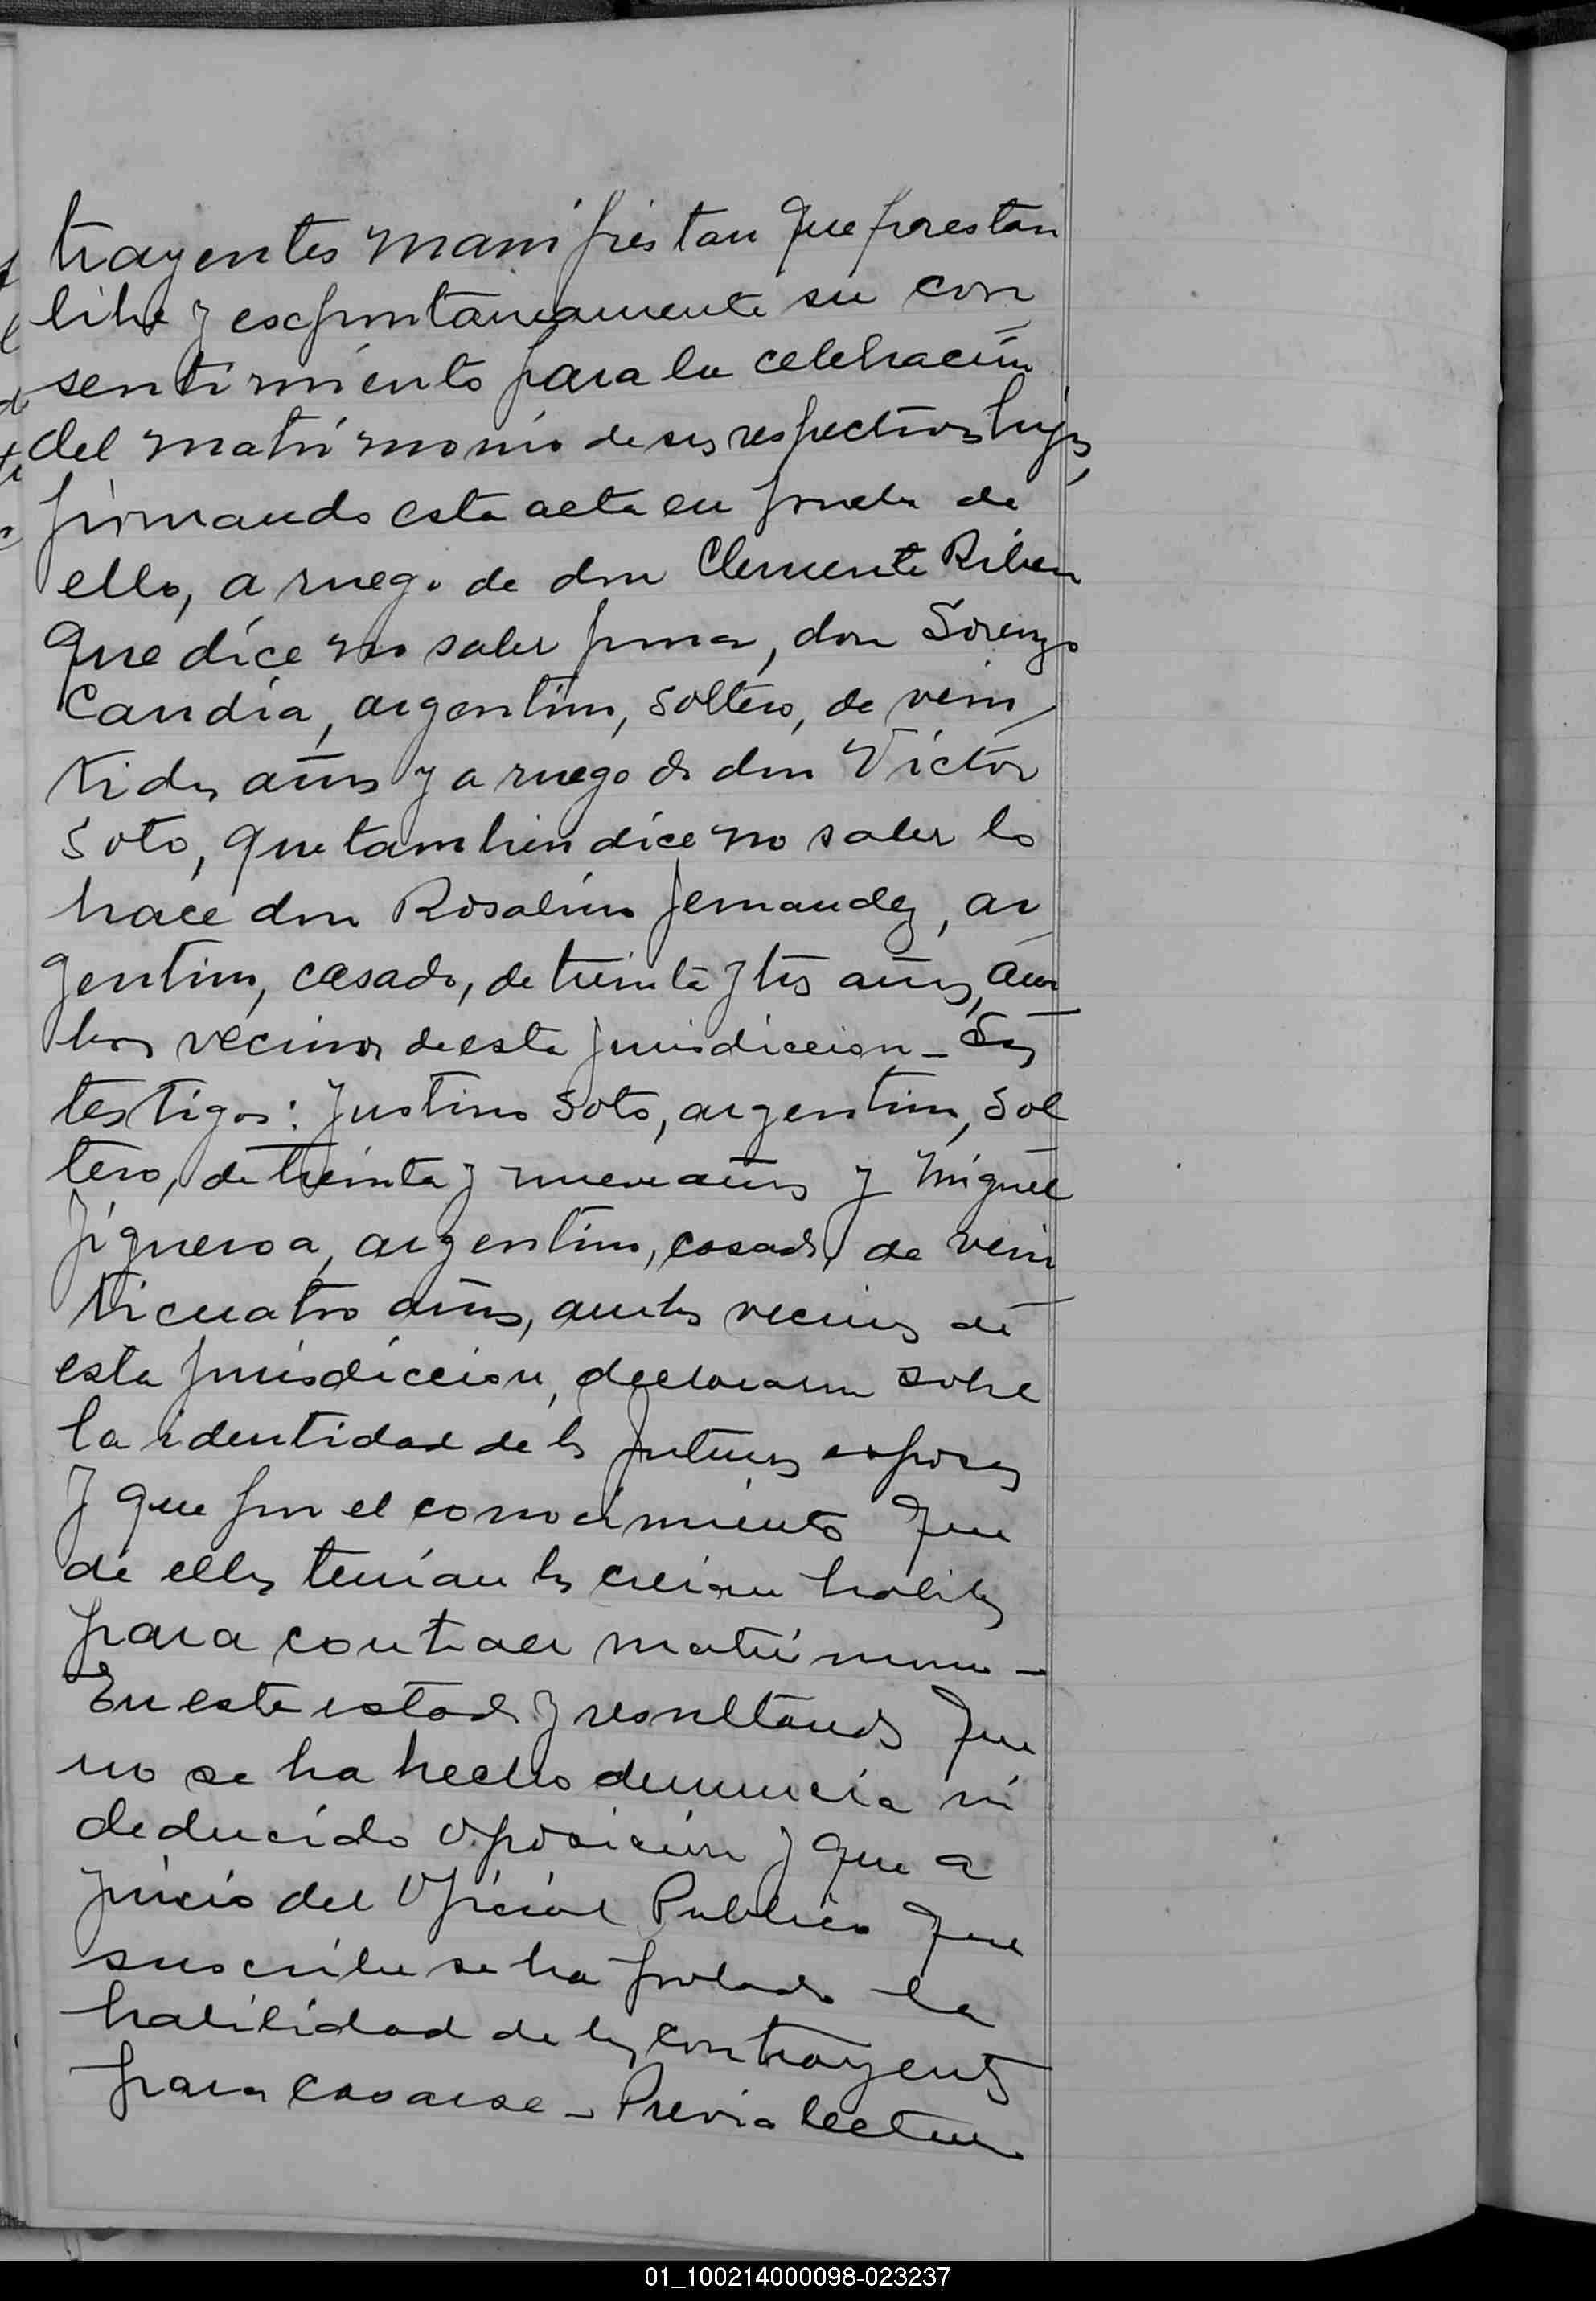 trayentes manifiestan que prestan
libre y exspontaneamente su con
sentimiento para la celebración
del matrimonio de sus respectivos hijos,
firmando esta acta en prueba de
ello, a ruego de don Clemente Riben
que dice no saber firmar, don Lorenzo
Candia, argentino, soltero, de vein
tidos años y a ruego de don Victor
Soto, que tambien dice no saber lo
hace don Rosalino Fernandez, ar
gentino, casado, de treinta y tres años, am
bos vecinos de esta jurisdiccion - Sus
testigos: Justino Soto, argentino, sol
tero, de treinta y nueve años y Miguel
Figueroa, argentino, casado, de vein
ticuatro años, ambos vecinos de
esta jurisdiccion, declararon sobre
la identidad de los futuros esposos
y que por el conocimiento que
de ellos tenían los creían habiles
para contraer matrimonio -
En este estado y resultando que
no se ha hecho denuncia ni
deducido oposicion y que a
juicio del Oficial Publico que
suscribe se ha probado la
habilidad de los contrayentes
para casarse - Previa lectura
01_100214000098-023237